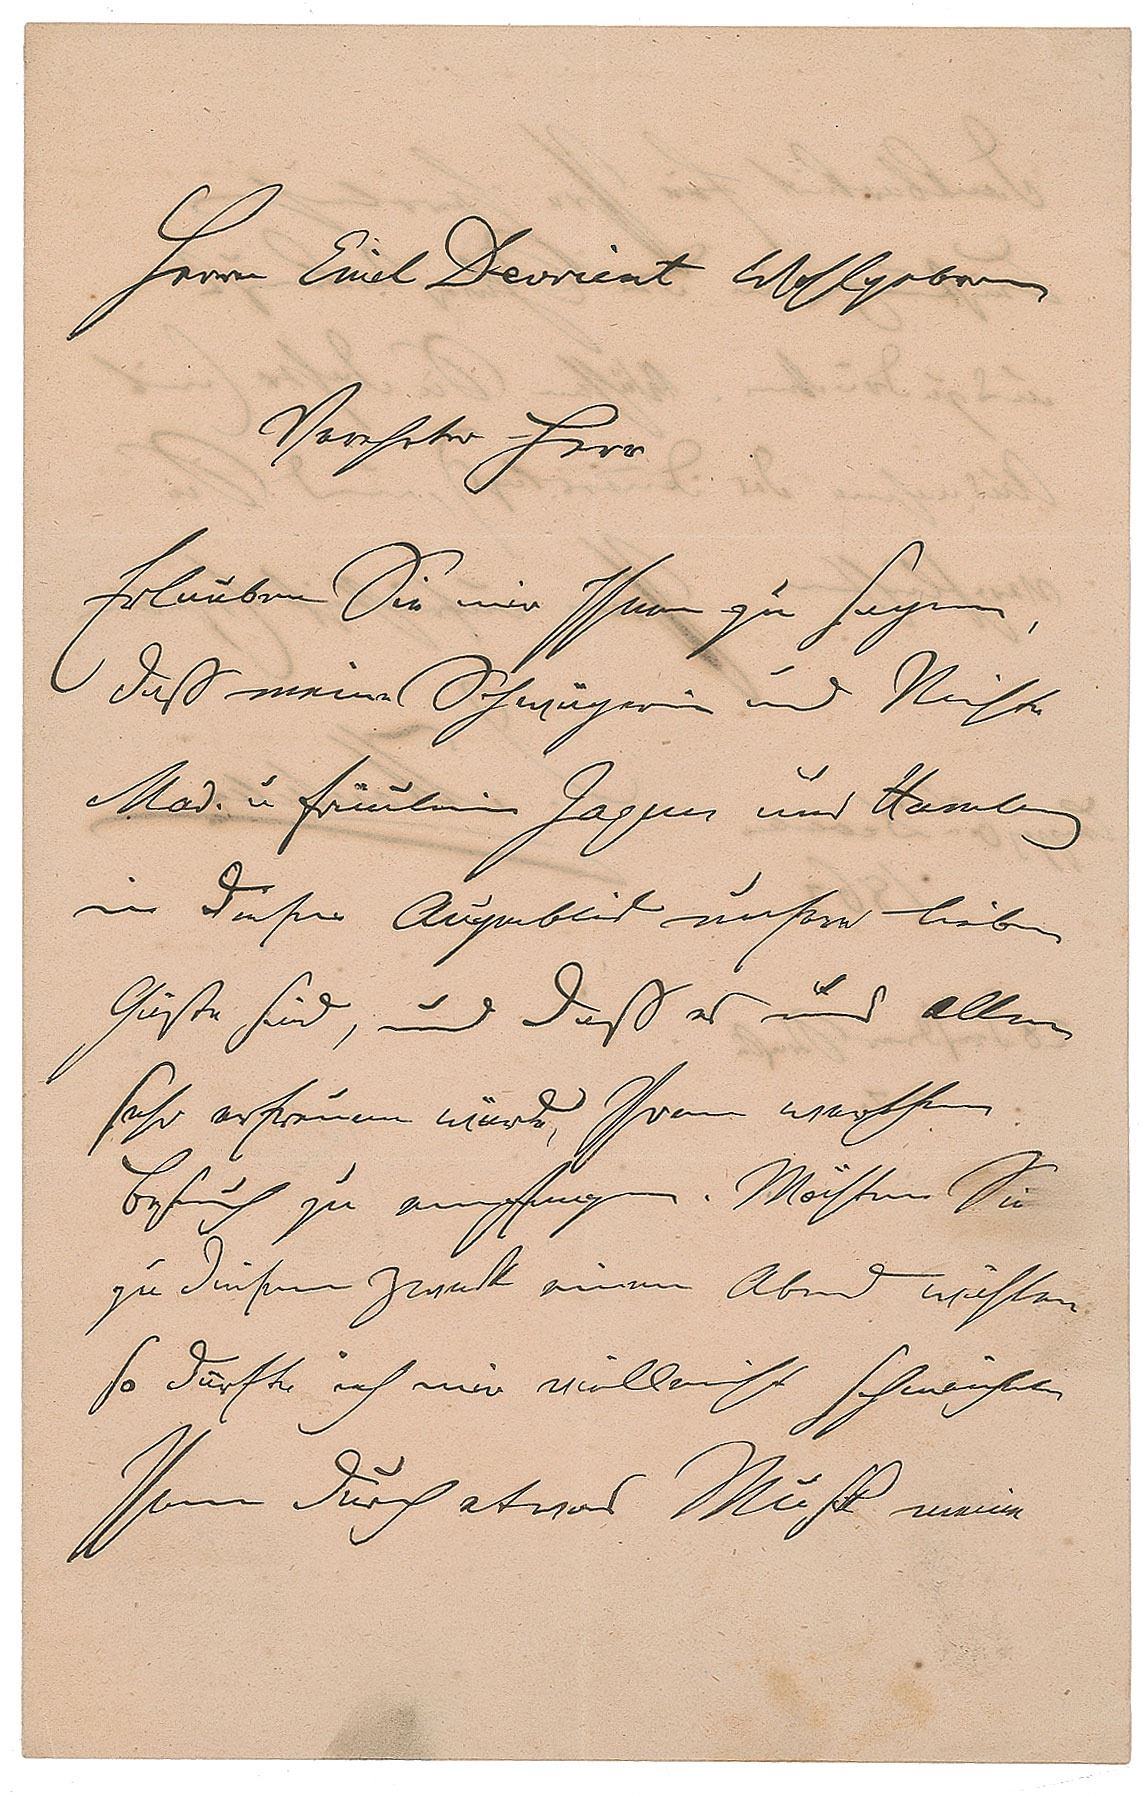 Herrn Emil Devrient Wohlgeboren
Verehrter Herr
Erlauben Sie mir Ihnen zu sagen,
daß meine Schwägerin und Nichte
Mad. u Fräulein Jaques aus Hamburg
in diesem Augenblick unsere lieben
Gäste sind, und daß es uns allen
sehr erfreuen würde, Ihren werthen
Besuch zu empfangen. Möchten Sie
zu diesem Zweck einen Abend wählen
so dürfte ich mir vielleicht schmeicheln
Ihnen durch etwas Musik meine